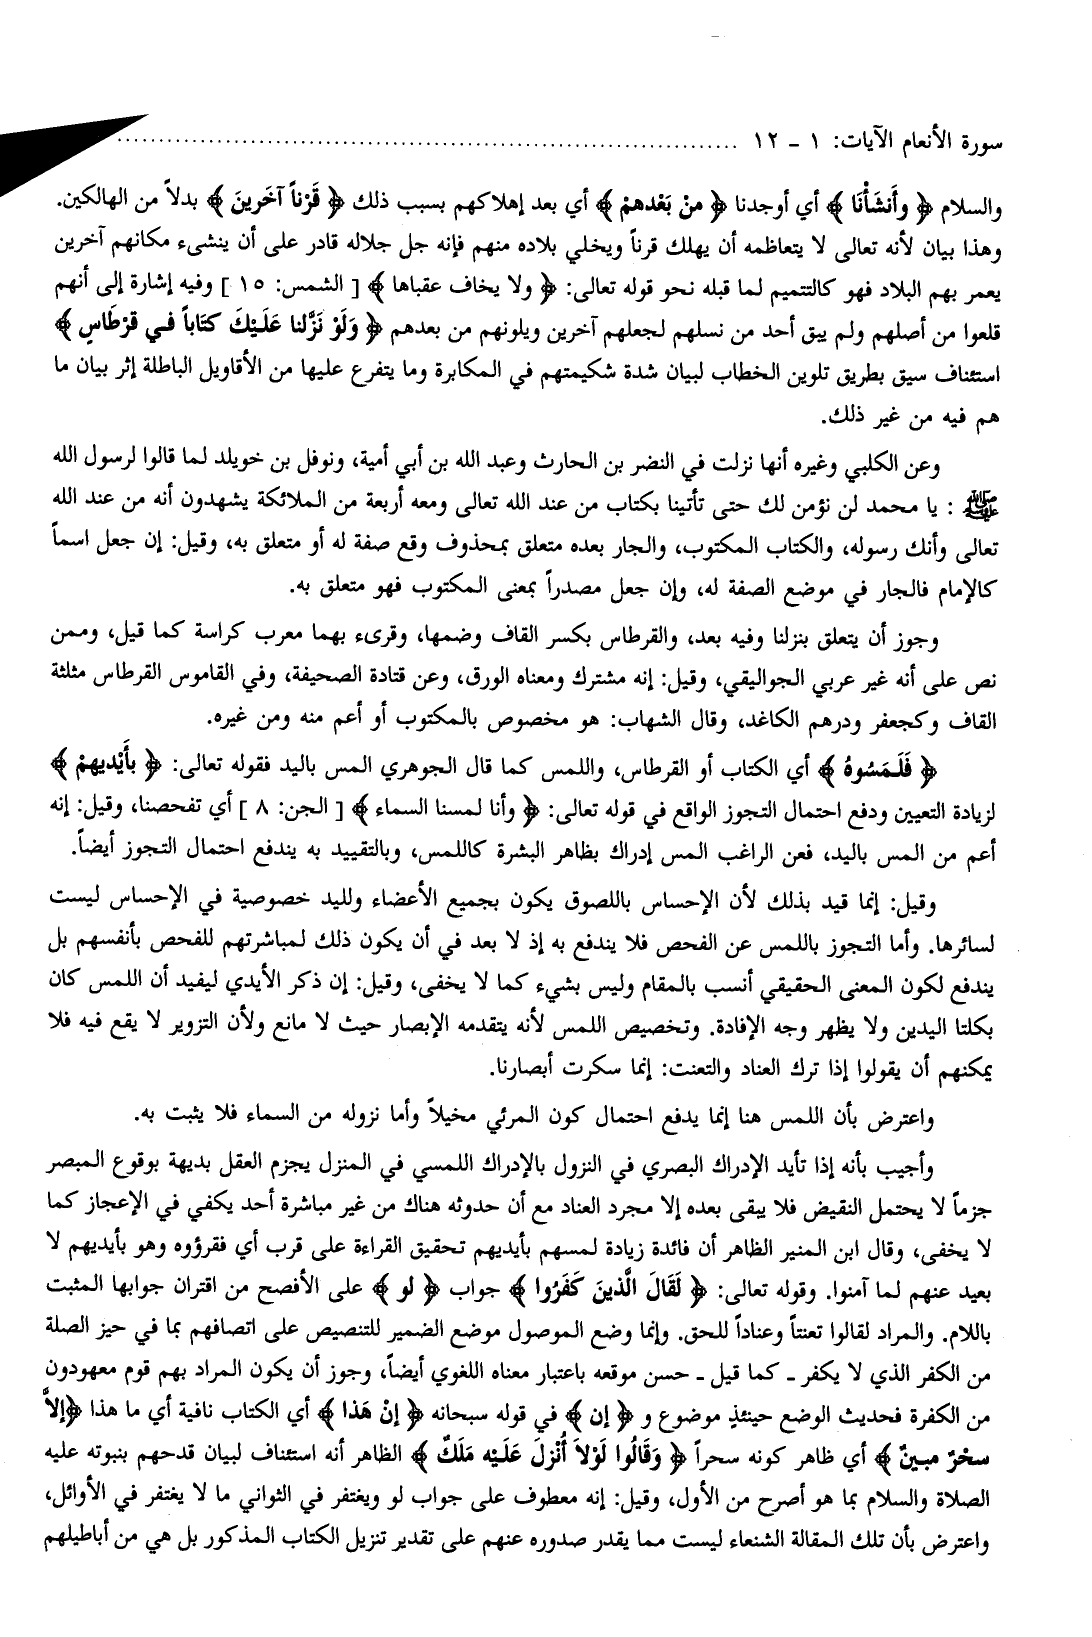 سورة الأنعام الآيات: ١ - ١٢ ..........
والسلام ﴿ وأَنشَأْنَا ﴾ أي أوجدنا ﴿ منْ بَعْدهمْ ﴾ أي بعد إهلاكهم بسبب ذلك ﴿ قَرْناً آخَرينَ ﴾ بدلاً من الهالكين.
وهذا بيان لأنه تعالى لا يتعاظمه أن يهلك قرناً ويخلي بلاده منهم فإنه جل جلاله قادر على أن ينشىء مكانهم آخرين
يعمر بهم البلاد فهو كالتتميم لما قبله نحو قوله تعالى: ﴿ ولا يخاف عقباها ﴾ [ الشمس: ١٥ ] وفيه إشارة إلى أنهم
قلعوا من أصلهم ولم يبق أحد من نسلهم لجعلهم آخرين ويلونهم من بعدهم ﴿ وَلَوْ نَزَّلنا عَلَيْكَ كتَاباً في قرْطَاسٍ ﴾
استئناف سيق بطريق تلوين الخطاب لبيان شدة شكيمتهم في المكابرة وما يتفرع عليها من الأقاويل الباطلة إثر بيان ما
هم فيه من غير ذلك.
وعن الكلبي وغيره أنها نزلت في النضر بن الحارث وعبد الله بن أبي أمية، ونوفل بن خويلد لما قالوا لرسول الله
ﷺ : يا محمد لن نؤمن لك حتى تأتينا بكتاب من عند الله تعالى ومعه أربعة من الملائكة يشهدون أنه من عند الله
تعالى وأنك رسوله، والكتاب المكتوب، والجار بعده متعلق بمحذوف وقع صفة له أو متعلق به، وقيل: إن جعل اسماً
كالإمام فالجار في موضع الصفة له، وإن جعل مصدراً بمعنى المكتوب فهو متعلق به.
وجوز أن يتعلق بنزلنا وفيه بعد، والقرطاس بكسر القاف وضمها، وقرىء بهما معرب كراسة كما قيل، وممن
نص على أنه غير عربي الجواليقي، وقيل: إنه مشترك ومعناه الورق، وعن قتادة الصحيفة، وفي القاموس القرطاس مثلثة
القاف وكجعفر ودرهم الكاغد، وقال الشهاب: هو مخصوص بالمكتوب أو أعم منه ومن غيره.
﴿ فَلَمَسُوهُ ﴾ أي الكتاب أو القرطاس، واللمس كما قال الجوهري المس باليد فقوله تعالى: ﴿ بأَيْديهمْ ﴾
لزيادة التعيين ودفع احتمال التجوز الواقع في قوله تعالى: ﴿ وأنا لمسنا السماء ﴾ [ الجن: ٨ ] أي تفحصنا، وقيل: إنه
أعم من المس باليد، فعن الراغب المس إدراك بظاهر البشرة كاللمس، وبالتقييد به يندفع احتمال التجوز أيضاً.
وقيل: إنما قيد بذلك لأن الإحساس باللصوق يكون بجميع الأعضاء ولليد خصوصية في الإحساس ليست
لسائرها. وأما التجوز باللمس عن الفحص فلا يندفع به إذ لا بعد في أن يكون ذلك لمباشرتهم للفحص بأنفسهم بل
يندفع لكون المعنى الحقيقي أنسب بالمقام وليس بشيء كما لا يخفى، وقيل: إن ذكر الأيدي ليفيد أن اللمس كان
بكلتا اليدين ولا يظهر وجه الإفادة. وتخصيص اللمس لأنه يتقدمه الإبصار حيث لا مانع ولأن التزوير لا يقع فيه فلا
يمكنهم أن يقولوا إذا ترك العناد والتعنت: إنما سكرت أبصارنا.
واعترض بأن اللمس هنا إنما يدفع احتمال كون المرئي مخيلاً وأما نزوله من السماء فلا يثبت به.
وأجيب بأنه إذا تأيد الإدراك البصري في النزول بالإدراك اللمسي في المنزل يجزم العقل بديهة بوقوع المبصر
جزماً لا يحتمل النقيض فلا يبقى بعده إلا مجرد العناد مع أن حدوثه هناك من غير مباشرة أحد يكفي في الإعجاز كما
لا يخفى، وقال ابن المنير الظاهر أن فائدة زيادة لمسهم بأيديهم تحقيق القراءة على قرب أي فقرؤوه وهو بأيديهم لا
بعيد عنهم لما آمنوا. وقوله تعالى: ﴿ لَقَالَ الَّذينَ كَفَرُوا ﴾ جواب ﴿ لو ﴾ على الأفصح من اقتران جوابها المثبت
باللام. والمراد لقالوا تعنتاً وعناداً للحق. وإنما وضع الموصول موضع الضمير للتنصيص على اتصافهم بما في حيز الصلة
من الكفر الذي لا يكفر - كما قيل - حسن موقعه باعتبار معناه اللغوي أيضاً، وجوز أن يكون المراد بهم قوم معهودون
من الكفرة فحديث الوضع حينئذٍ موضوع و ﴿ إن ﴾ في قوله سبحانه ﴿ إنْ هَذا ﴾ أي الكتاب نافية أي ما هذا ﴿إلاَّ
سحْرٌ مبينٌ ﴾ أي ظاهر كونه سحراً ﴿ وَقَالُوا لَوْلاَ أُنْزلَ عَلَيْه مَلَكٌ ﴾ الظاهر أنه استئناف لبيان قدحهم بنبوته عليه
الصلاة والسلام بما هو أصرح من الأول، وقيل: إنه معطوف على جواب لو ويغتفر في الثواني ما لا يغتفر في الأوائل،
واعترض بأن تلك المقالة الشنعاء ليست مما يقدر صدوره عنهم على تقدير تنزيل الكتاب المذكور بل هي من أباطيلهم